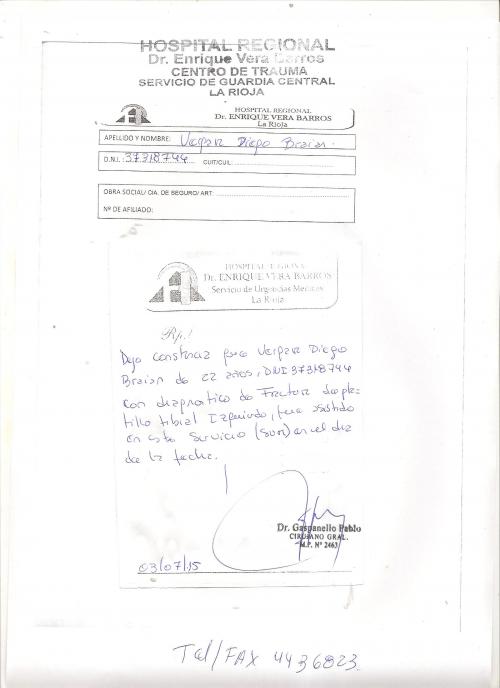 HOSPITAL REGIONAL
Dr. Enrique Vera Barros
CENTRO DE TRAUMA
SERVICIO DE GUARDIA CENTRAL
LA RIOJA
HOSPITAL REGIONAL
Dr. ENRIQUE VERA BARROS
La Rioja
APELLIDO Y NOMBRE: Vergara Diego Braian.
D.N.I.: 37318744 CUIT/CUIL:
OBRA SOCIAL/ CIA. DE SEGURO/ ART:
Nº DE AFILIADO:
HOSPITAL REGIONAL
Dr. ENRIQUE VERA BARROS
Servicio de Urgencias Médicas
La Rioja
Rp.:
Dejo constancia para Vergara Diego
Braian de 22 años, DNI 37318744
con diagnostico de Fractura de pla-
tillo tibial Izquierdo, fue asistido
en este Servicio (SUM) en el dia
de la fecha.
Dr. Gaspanello Pablo
CIRUJANO GRAL.
M.P. Nº 2463
03/07/15
Tel/FAX 4436823.